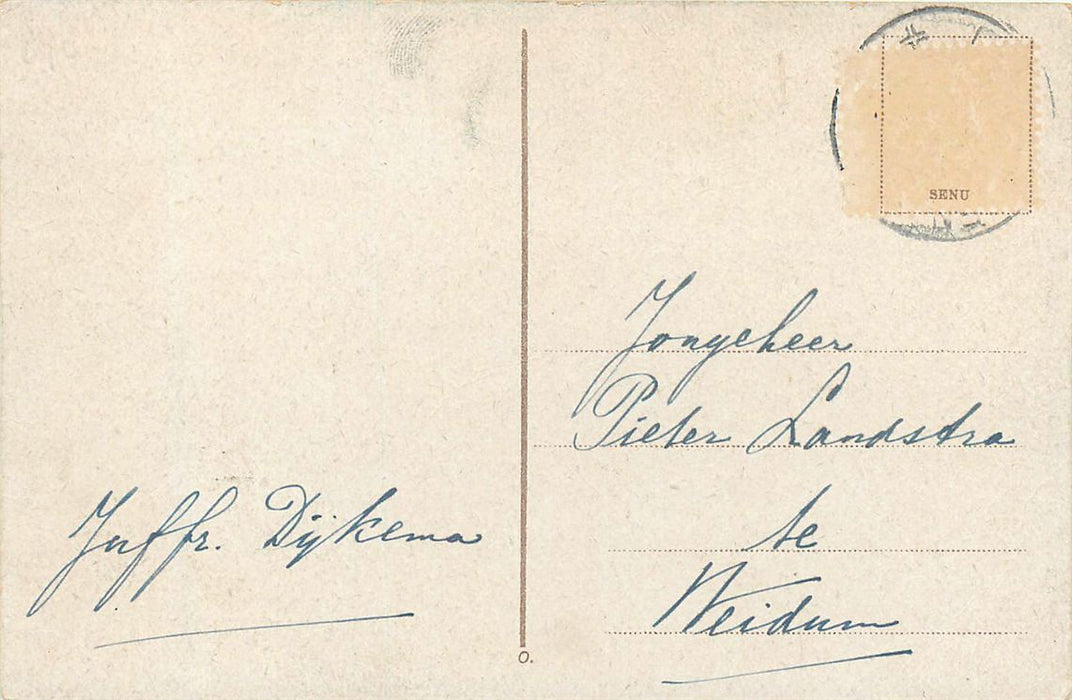 SENU
Jongeheer
Pieter Landstra
te
Weidum
Juffr. Dijkema
O.